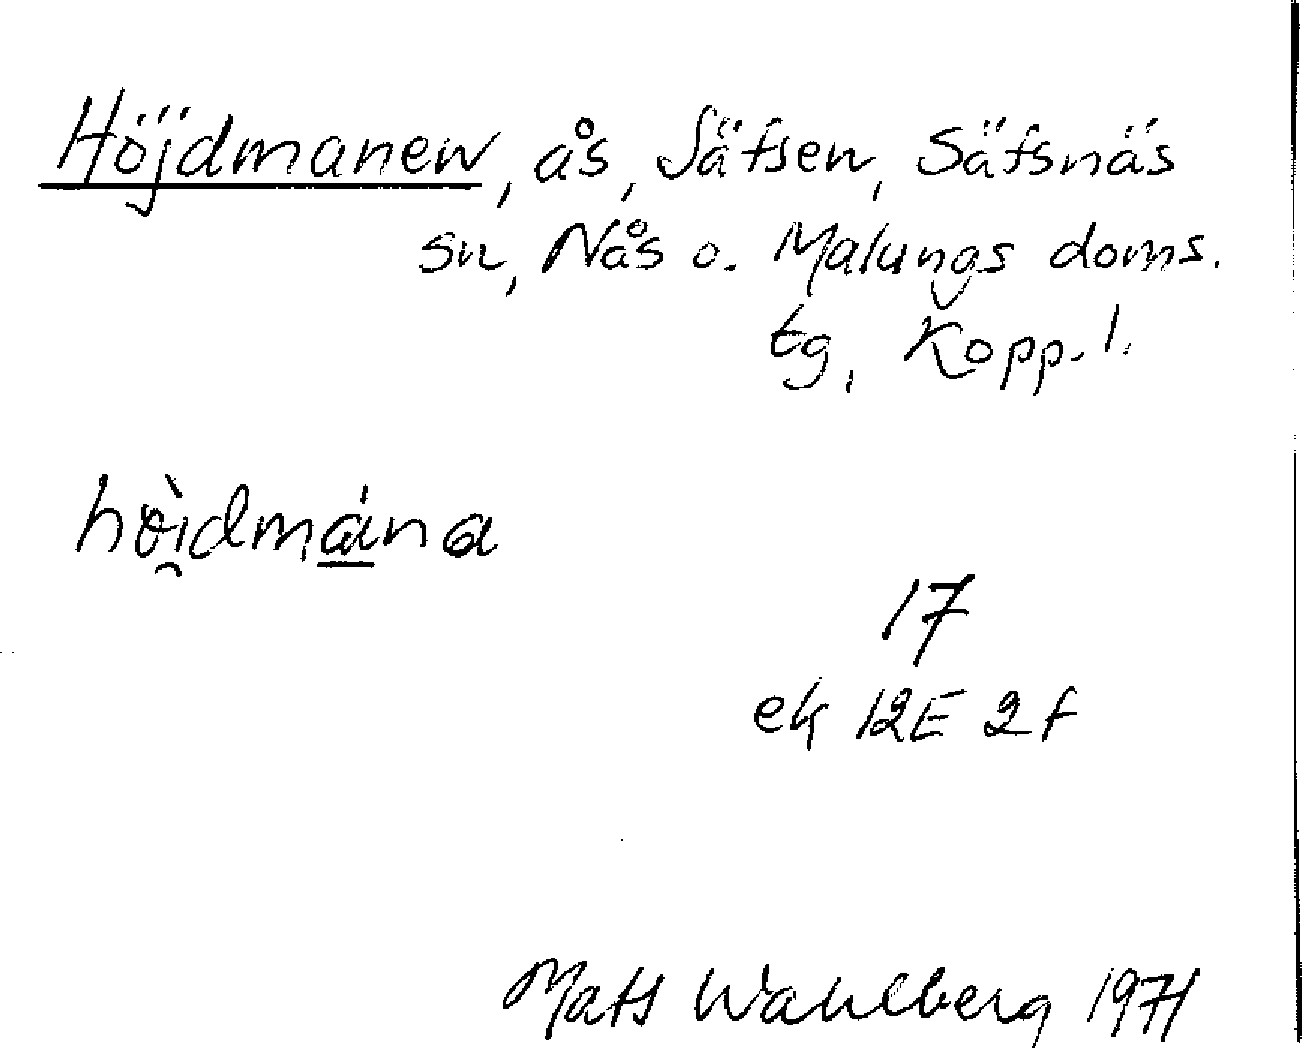 Höjdmanen, ås, Säfsen, Säfsnäs
sn, Nås o. Malungs doms.
tg, Kopp. l.
hö̀i̯dmána
17
ek 12E 2f
Mats Wahlberg 1971